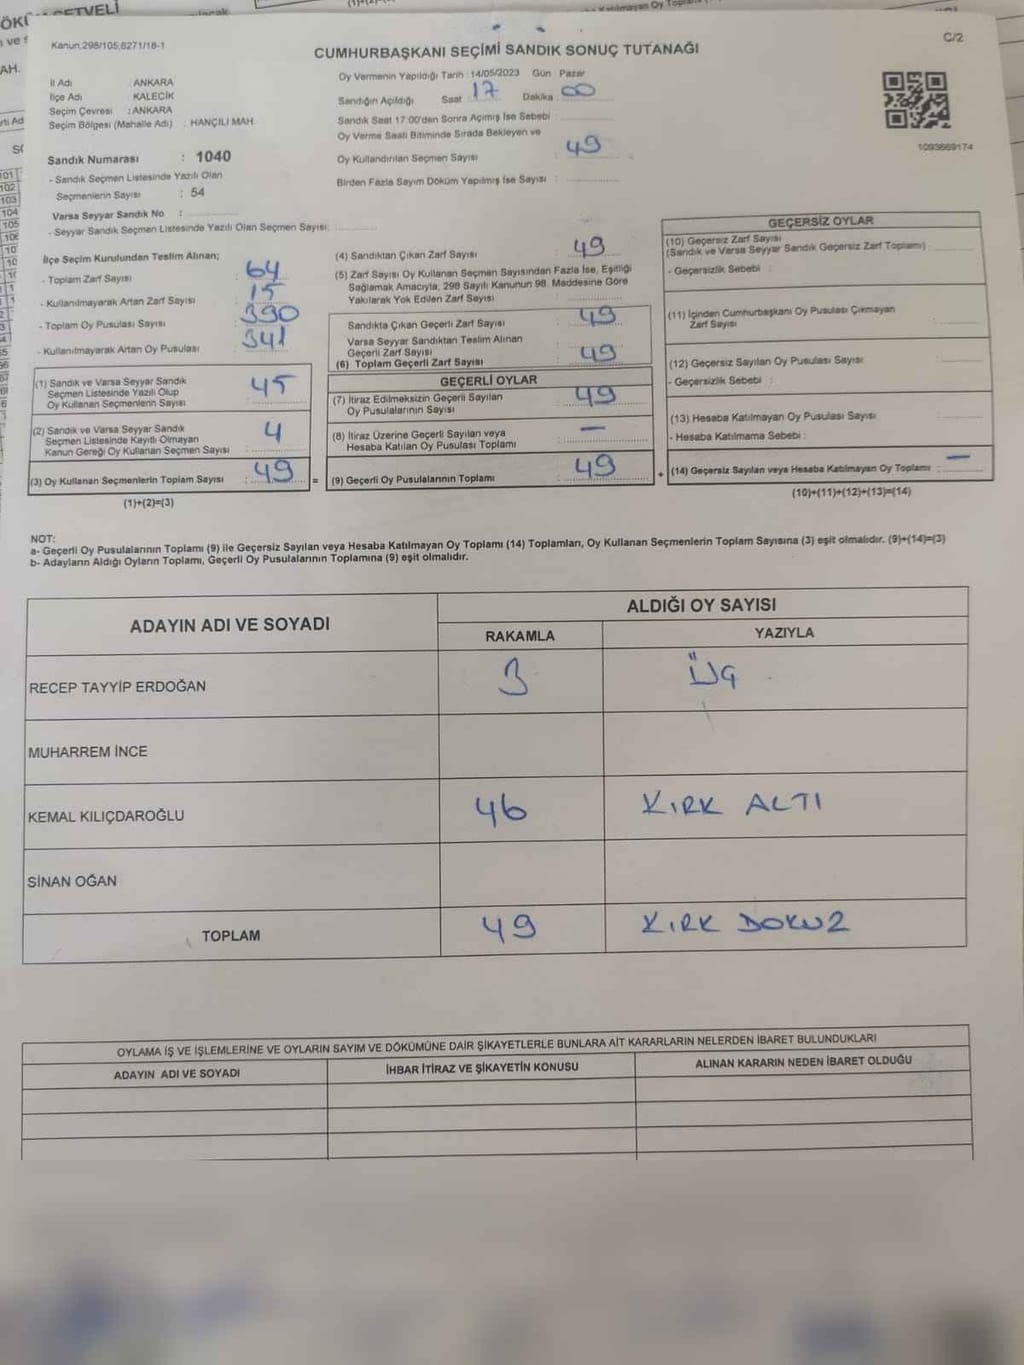 Kanun,298/105,6271/18-1
C/2
CUMHURBAŞKANI SEÇİMİ SANDIK SONUÇ TUTANAĞI
İl Adı : ANKARA
İlçe Adı : KALECİK
Seçim Çevresi : ANKARA
Seçim Bölgesi (Mahalle Adı) : HANÇILI MAH.
Sandık Numarası : 1040
- Sandık Seçmen Listesinde Yazılı Olan
Seçmenlerin Sayısı : 54
Varsa Seyyar Sandık No :
- Seyyar Sandık Seçmen Listesinde Yazılı Olan Seçmen Sayısı:
Oy Vermenin Yapıldığı Tarih : 14/05/2023 Gün : Pazar
Sandığın Açıldığı Saat 17 Dakika 00
Sandık Saat 17:00'den Sonra Açılmış İse Sebebi :
Oy Verme Saati Bitiminde Sırada Bekleyen ve
Oy Kullandırılan Seçmen Sayısı : 49
Birden Fazla Sayım Döküm Yapılmış İse Sayısı :
1093669174
İlçe Seçim Kurulundan Teslim Alınan;
- Toplam Zarf Sayısı : 64
- Kullanılmayarak Artan Zarf Sayısı : 15
- Toplam Oy Pusulası Sayısı : 390
- Kullanılmayarak Artan Oy Pusulası : 341
(1) Sandık ve Varsa Seyyar Sandık
Seçmen Listesinde Yazılı Olup
Oy Kullanan Seçmenlerin Sayısı : 45
(2) Sandık ve Varsa Seyyar Sandık
Seçmen Listesinde Kayıtlı Olmayan
Kanun Gereği Oy Kullanan Seçmen Sayısı : 4
(3) Oy Kullanan Seçmenlerin Toplam Sayısı : 49
(1)+(2)=(3)
=
(4) Sandıktan Çıkan Zarf Sayısı : 49
(5) Zarf Sayısı Oy Kullanan Seçmen Sayısından Fazla İse, Eşitliği
Sağlamak Amacıyla, 298 Sayılı Kanunun 98. Maddesine Göre
Yakılarak Yok Edilen Zarf Sayısı :
Sandıkta Çıkan Geçerli Zarf Sayısı : 49
Varsa Seyyar Sandıktan Teslim Alınan
Geçerli Zarf Sayısı
(6) Toplam Geçerli Zarf Sayısı : 49
GEÇERLİ OYLAR
(7) İtiraz Edilmeksizin Geçerli Sayılan
Oy Pusulalarının Sayısı : 49
(8) İtiraz Üzerine Geçerli Sayılan veya
Hesaba Katılan Oy Pusulası Toplamı : —
(9) Geçerli Oy Pusulalarının Toplamı : 49
+
GEÇERSİZ OYLAR
(10) Geçersiz Zarf Sayısı
(Sandık ve Varsa Seyyar Sandık Geçersiz Zarf Toplamı) :
- Geçersizlik Sebebi :
(11) İçinden Cumhurbaşkanı Oy Pusulası Çıkmayan
Zarf Sayısı :
(12) Geçersiz Sayılan Oy Pusulası Sayısı :
- Geçersizlik Sebebi :
(13) Hesaba Katılmayan Oy Pusulası Sayısı :
- Hesaba Katılmama Sebebi :
(14) Geçersiz Sayılan veya Hesaba Katılmayan Oy Toplamı : —
(10)+(11)+(12)+(13)=(14)
NOT:
a- Geçerli Oy Pusulalarının Toplamı (9) ile Geçersiz Sayılan veya Hesaba Katılmayan Oy Toplamı (14) Toplamları, Oy Kullanan Seçmenlerin Toplam Sayısına (3) eşit olmalıdır. (9)+(14)=(3)
b- Adayların Aldığı Oyların Toplamı, Geçerli Oy Pusulalarının Toplamına (9) eşit olmalıdır.
ADAYIN ADI VE SOYADI
ALDIĞI OY SAYISI
RAKAMLA YAZIYLA
RECEP TAYYİP ERDOĞAN 3 ÜÇ
MUHARREM İNCE
KEMAL KILIÇDAROĞLU 46 KIRK ALTI
SİNAN OĞAN
TOPLAM 49 KIRK DOKUZ
OYLAMA İŞ VE İŞLEMLERİNE VE OYLARIN SAYIM VE DÖKÜMÜNE DAİR ŞİKAYETLERLE BUNLARA AİT KARARLARIN NELERDEN İBARET BULUNDUKLARI
ADAYIN ADI VE SOYADI İHBAR İTİRAZ VE ŞİKAYETİN KONUSU ALINAN KARARIN NEDEN İBARET OLDUĞU